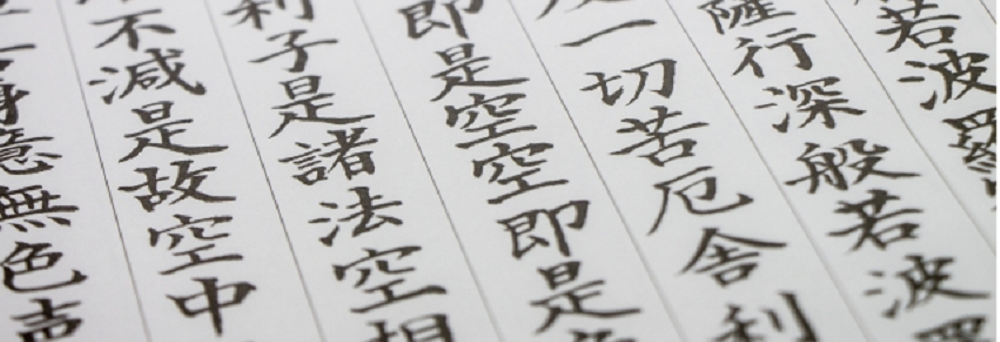 若波羅
薩行深般若波羅
一切苦厄舎利
即是空空即是
利子是諸法空相
不減是故空中
身意無色声